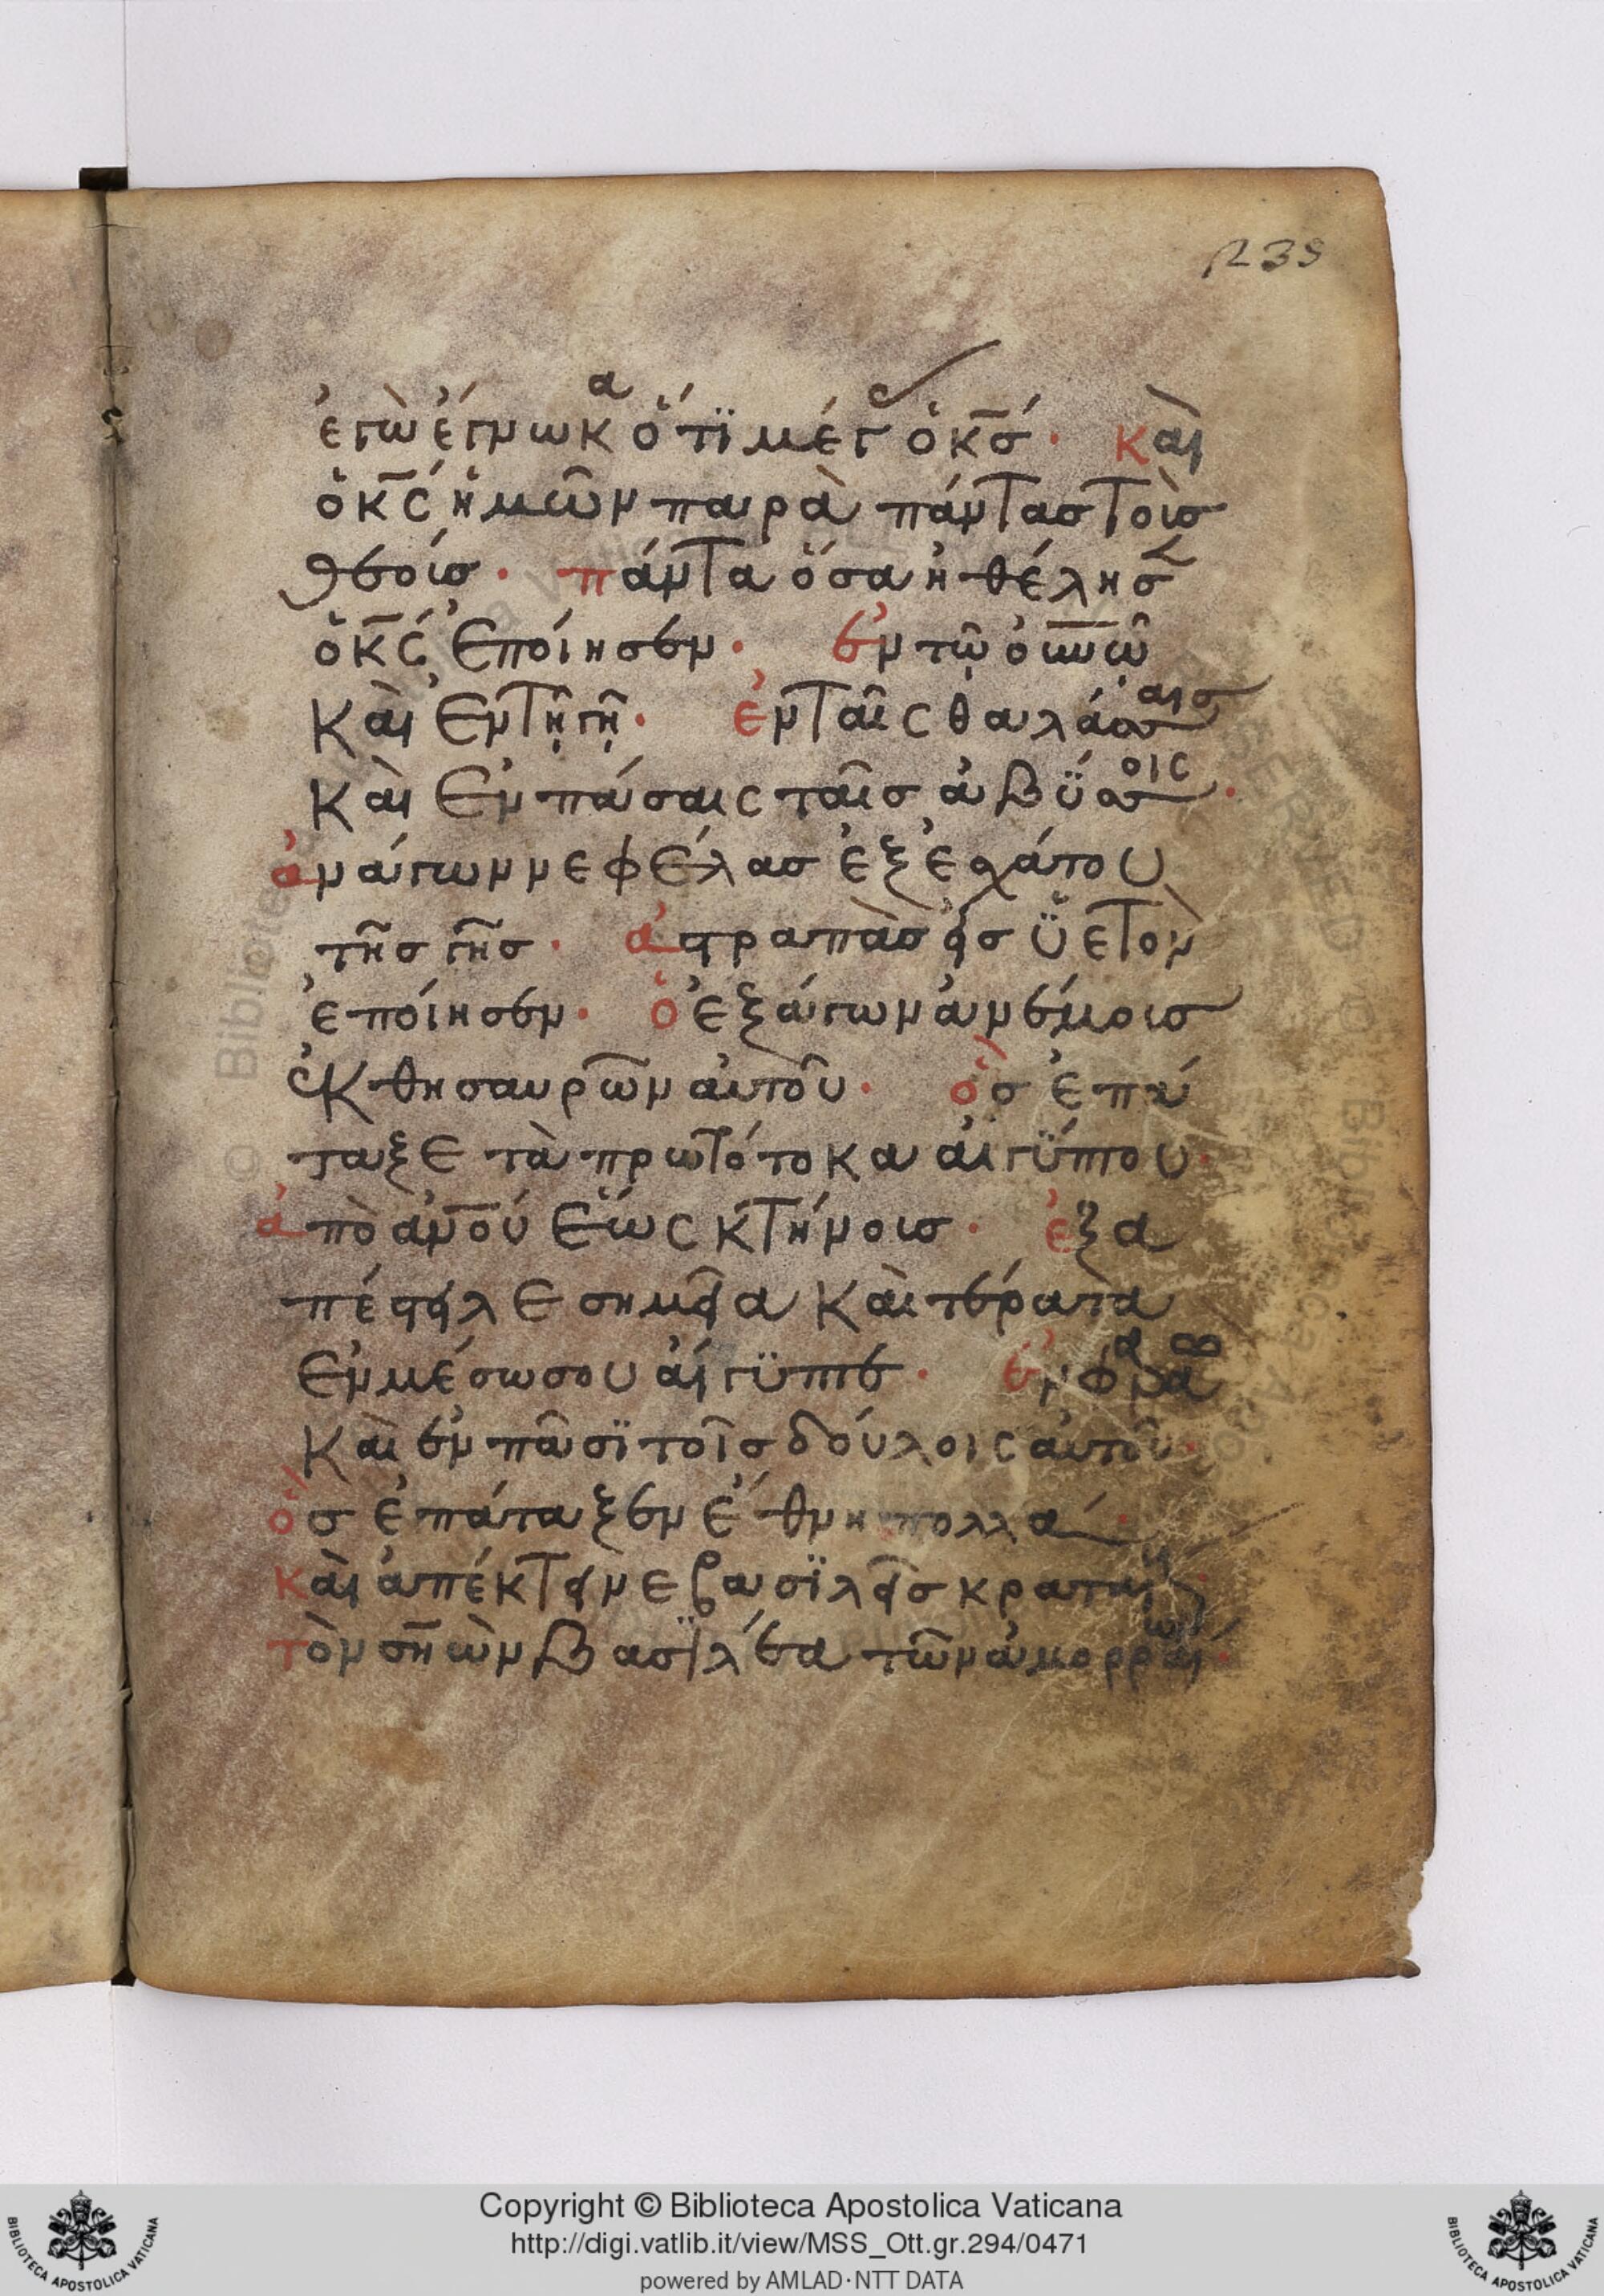 239
ἐγὼ ἔγνωκα ὅτι μέγ ὁ κσ· καὶ
ὁ κς ἡμῶν παρὰ πάντας τοὺσ
θεούσ· πάντα ὅσα ἠθέλησ
ὁ κς ἐποίησεν· ἐν τῷ οὐνῷ
καὶ ἐν τῇ γῇ· ἐν ταῖς θαλάσσαισ
καὶ ἐν πάσαις ταῖσ ἀβύσσοις·
ἀνάγων νεφέλασ ἐξ ἐσχάτου
τῆσ γῆσ· ἀστραπὰσ εἰσ ὑετὸν
ἐποίησεν· ὁ ἐξάγων ἀνέμουσ
ἐκ θησαυρῶν αὐτοῦ· ὃσ ἐπά
ταξε τὰ πρωτότοκα αἰγύπτου·
ἀπὸ ανου ἕως κτήνουσ· ἐξα
πέστειλε σημεῖα καὶ τέρατα
ἐν μέσω σου αἴγυπτε· ἐν φαραὼ
καὶ ἐν πᾶσι τοῖσ δούλοις αὐτοῦ·
ὃσ ἐπάταξεν ἔθνη πολλά·
καὶ ἀπέκτεινε βασιλεῖσ κραταιούς·
τὸν σηὼν βασιλέα τῶν ἀμορραίων·
© Biblioteca Apostolica Vaticana
Copyright © Biblioteca Apostolica Vaticana
http://digi.vatlib.it/view/MSS_Ott.gr.294/0471
powered by AMLAD·NTT DATA
BIBLIOTECA APOSTOLICA VATICANA
BIBLIOTECA APOSTOLICA VATICANA